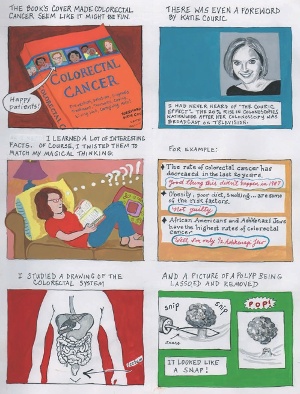 THE BOOK'S COVER MADE COLORECTAL
CANCER SEEM LIKE IT MIGHT BE FUN.
COLORECTAL
CANCER
Happy
patients!
THERE WAS EVEN A FOREWORD
BY KATIE COURIC
I HAD NEVER HEARD OF "THE COURIC
EFFECT": THE 20% RISE IN COLONOSCOPIES
NATIONWIDE AFTER HER COLONOSCOPY WAS
BROADCAST ON TELEVISION.
I LEARNED A LOT OF INTERESTING
FACTS. OF COURSE, I TWISTED THEM TO
MATCH MY MAGICAL THINKING.
FOR EXAMPLE:
The rate of colorectal cancer has
decreased in the last 20 years.
Good thing this didn't happen in 1987
Obesity, poor diet, smoking... are some
of the risk factors.
Not guilty
African Americans and Ashkenazi Jews
have the highest rates of colorectal
cancer
Well I'm only ½ Ashkenazi Jew
I STUDIED A DRAWING OF THE
COLORECTAL SYSTEM
AND A PICTURE OF A POLYP BEING
LASSOED AND REMOVED
snip
snip
snare
POP!
IT LOOKED LIKE
A SNAP!